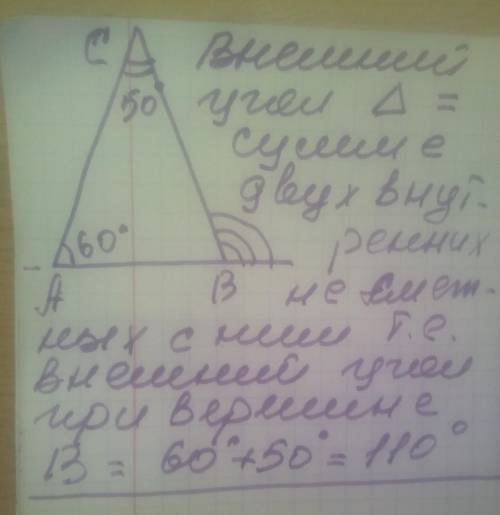 C Внешний
50 угол Δ =
сумме
двух внут-
60° ренних
A B не смеж-
ных с ним т.е.
внешний угол
при вершине
B = 60°+50°=110°